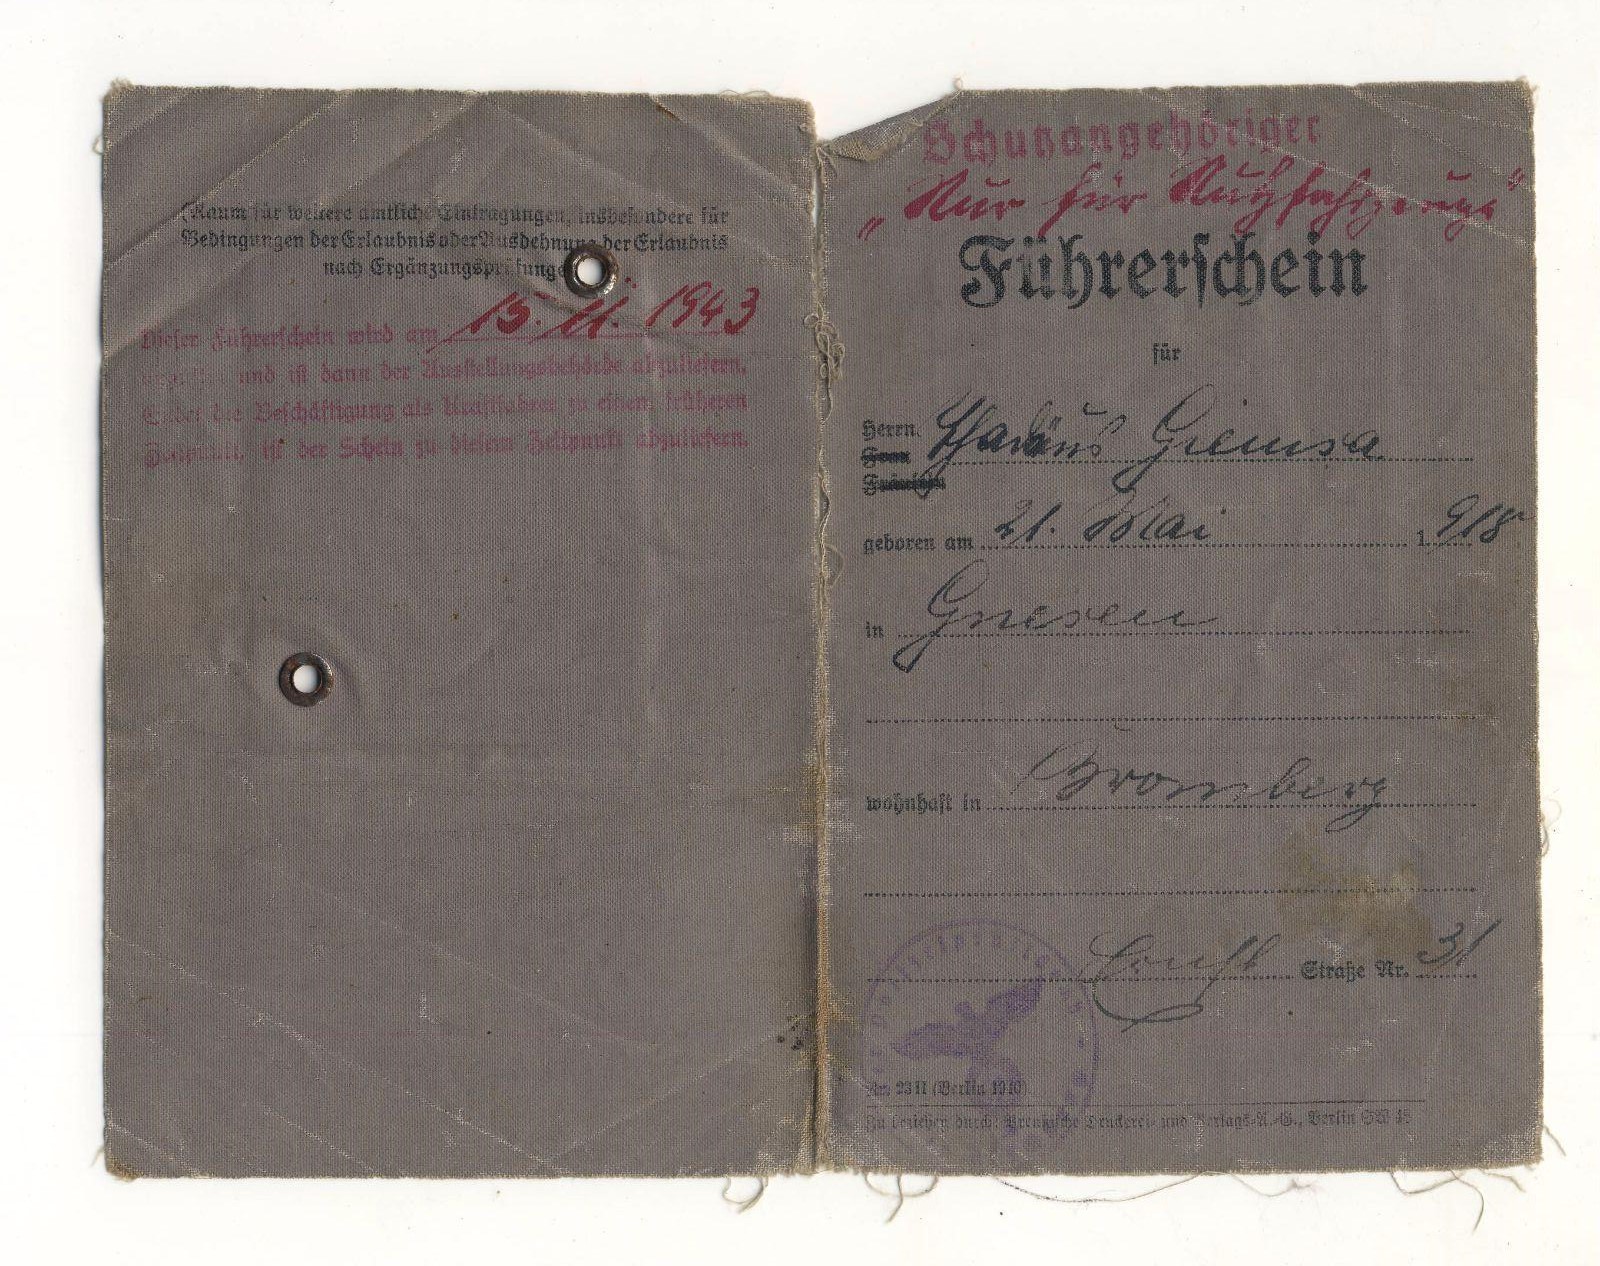 (Raum für weitere amtliche Eintragungen, insbesondere für
Bedingungen der Erlaubnis oder Ausdehnung der Erlaubnis
nach Ergänzungsprüfunge
Dieser Führerschein wird am 15. 11. 1943
ungültig und ist dann der Ausstellungsbehörde abzuliefern.
Endet die Beschäftigung als Kraftfahrer zu einem früheren
Zeitpunkt, ist der Schein zu diesem Zeitpunkt abzuliefern.
Schutzangehöriger
„Nur für Nutzfahrzeuge“
Führerschein
für
Herrn Thadäus Giemsa
Frau
Fräulein
geboren am 21. Mai 1918
in Gnesen
wohnhaft in Bromberg
Straße Nr. 31
Nr. 23 II (Berlin 1940)
Zu beziehen durch: Preußische Druckerei- und Verlags-A.-G., Berlin SW